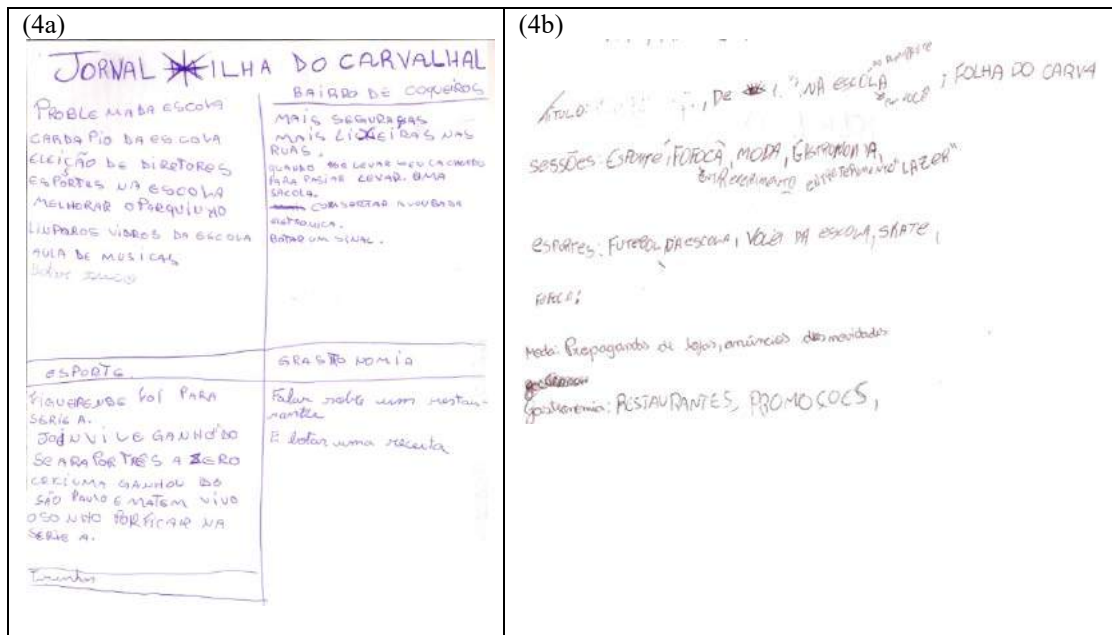 (4a)
JORNAL ILHA DO CARVALHAL
PROBLEMA DA ESCOLA
CARDAPIO DA ESCOLA
ELEIÇÃO DE DIRETORES
ESPORTES NA ESCOLA
MELHORAR O PARQUINHO
LINPAROS VIDROS DA ESCOLA
AULA DE MUSICAS
BAIRRO DE COQUEIROS
MAIS SEGURAÇAS
MAIS LIXEIRAS NAS
RUAS.
LEVAR MEU CACHORRO
PARA PASIAR LEVAR UMA
SACOLA.
BOTAR UM SINAL.
ESPORTE
FIGUERENSE FOI PARA
SERIE A.
JOINVILE GANHO DO
SEARA POR TRES A ZERO
CRICIUMA GANHOU DO
SÃO PAULO E MATEM VIVO
O SONHO POR FICAR NA
SERIE A.
GRASTRONOMIA
Falar sobre um restau-
rante
E botar uma receita
(4b)
TÍTULO: DE NA ESCOLA ; FOLHA DO CARVA
SESSÕES: ESPORTE, FOFOCA, MODA, GASTRONOMIA,
ENTRETERIMENTO "LAZER"
ESPORTES: FUTEBOL DA ESCOLA, VOLEI DA ESCOLA, SKATE,
FOFOCA:
Moda: Propagandas de lojas, anúncios das novidades
Gastronomia: RESTAURANTES, PROMOÇOES,